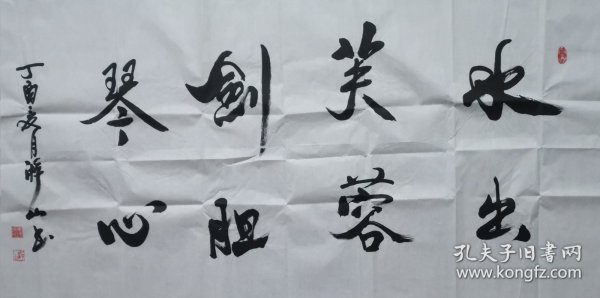 水出
芙蓉
剑胆
琴心
丁酉夏月
山书
孔夫子旧书网
www.kongfz.com